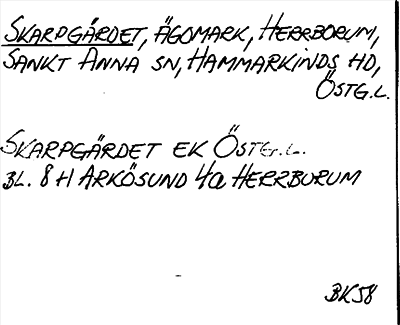 SKARPGÄRDET, ÄGOMARK, HERRBORUM,
SANKT ANNA SN, HAMMARKINDS HD,
ÖSTG.L.
SKARPGÄRDET EK ÖSTG.L.
BL. 8 H ARKÖSUND 4a HERRBURUM
BK58